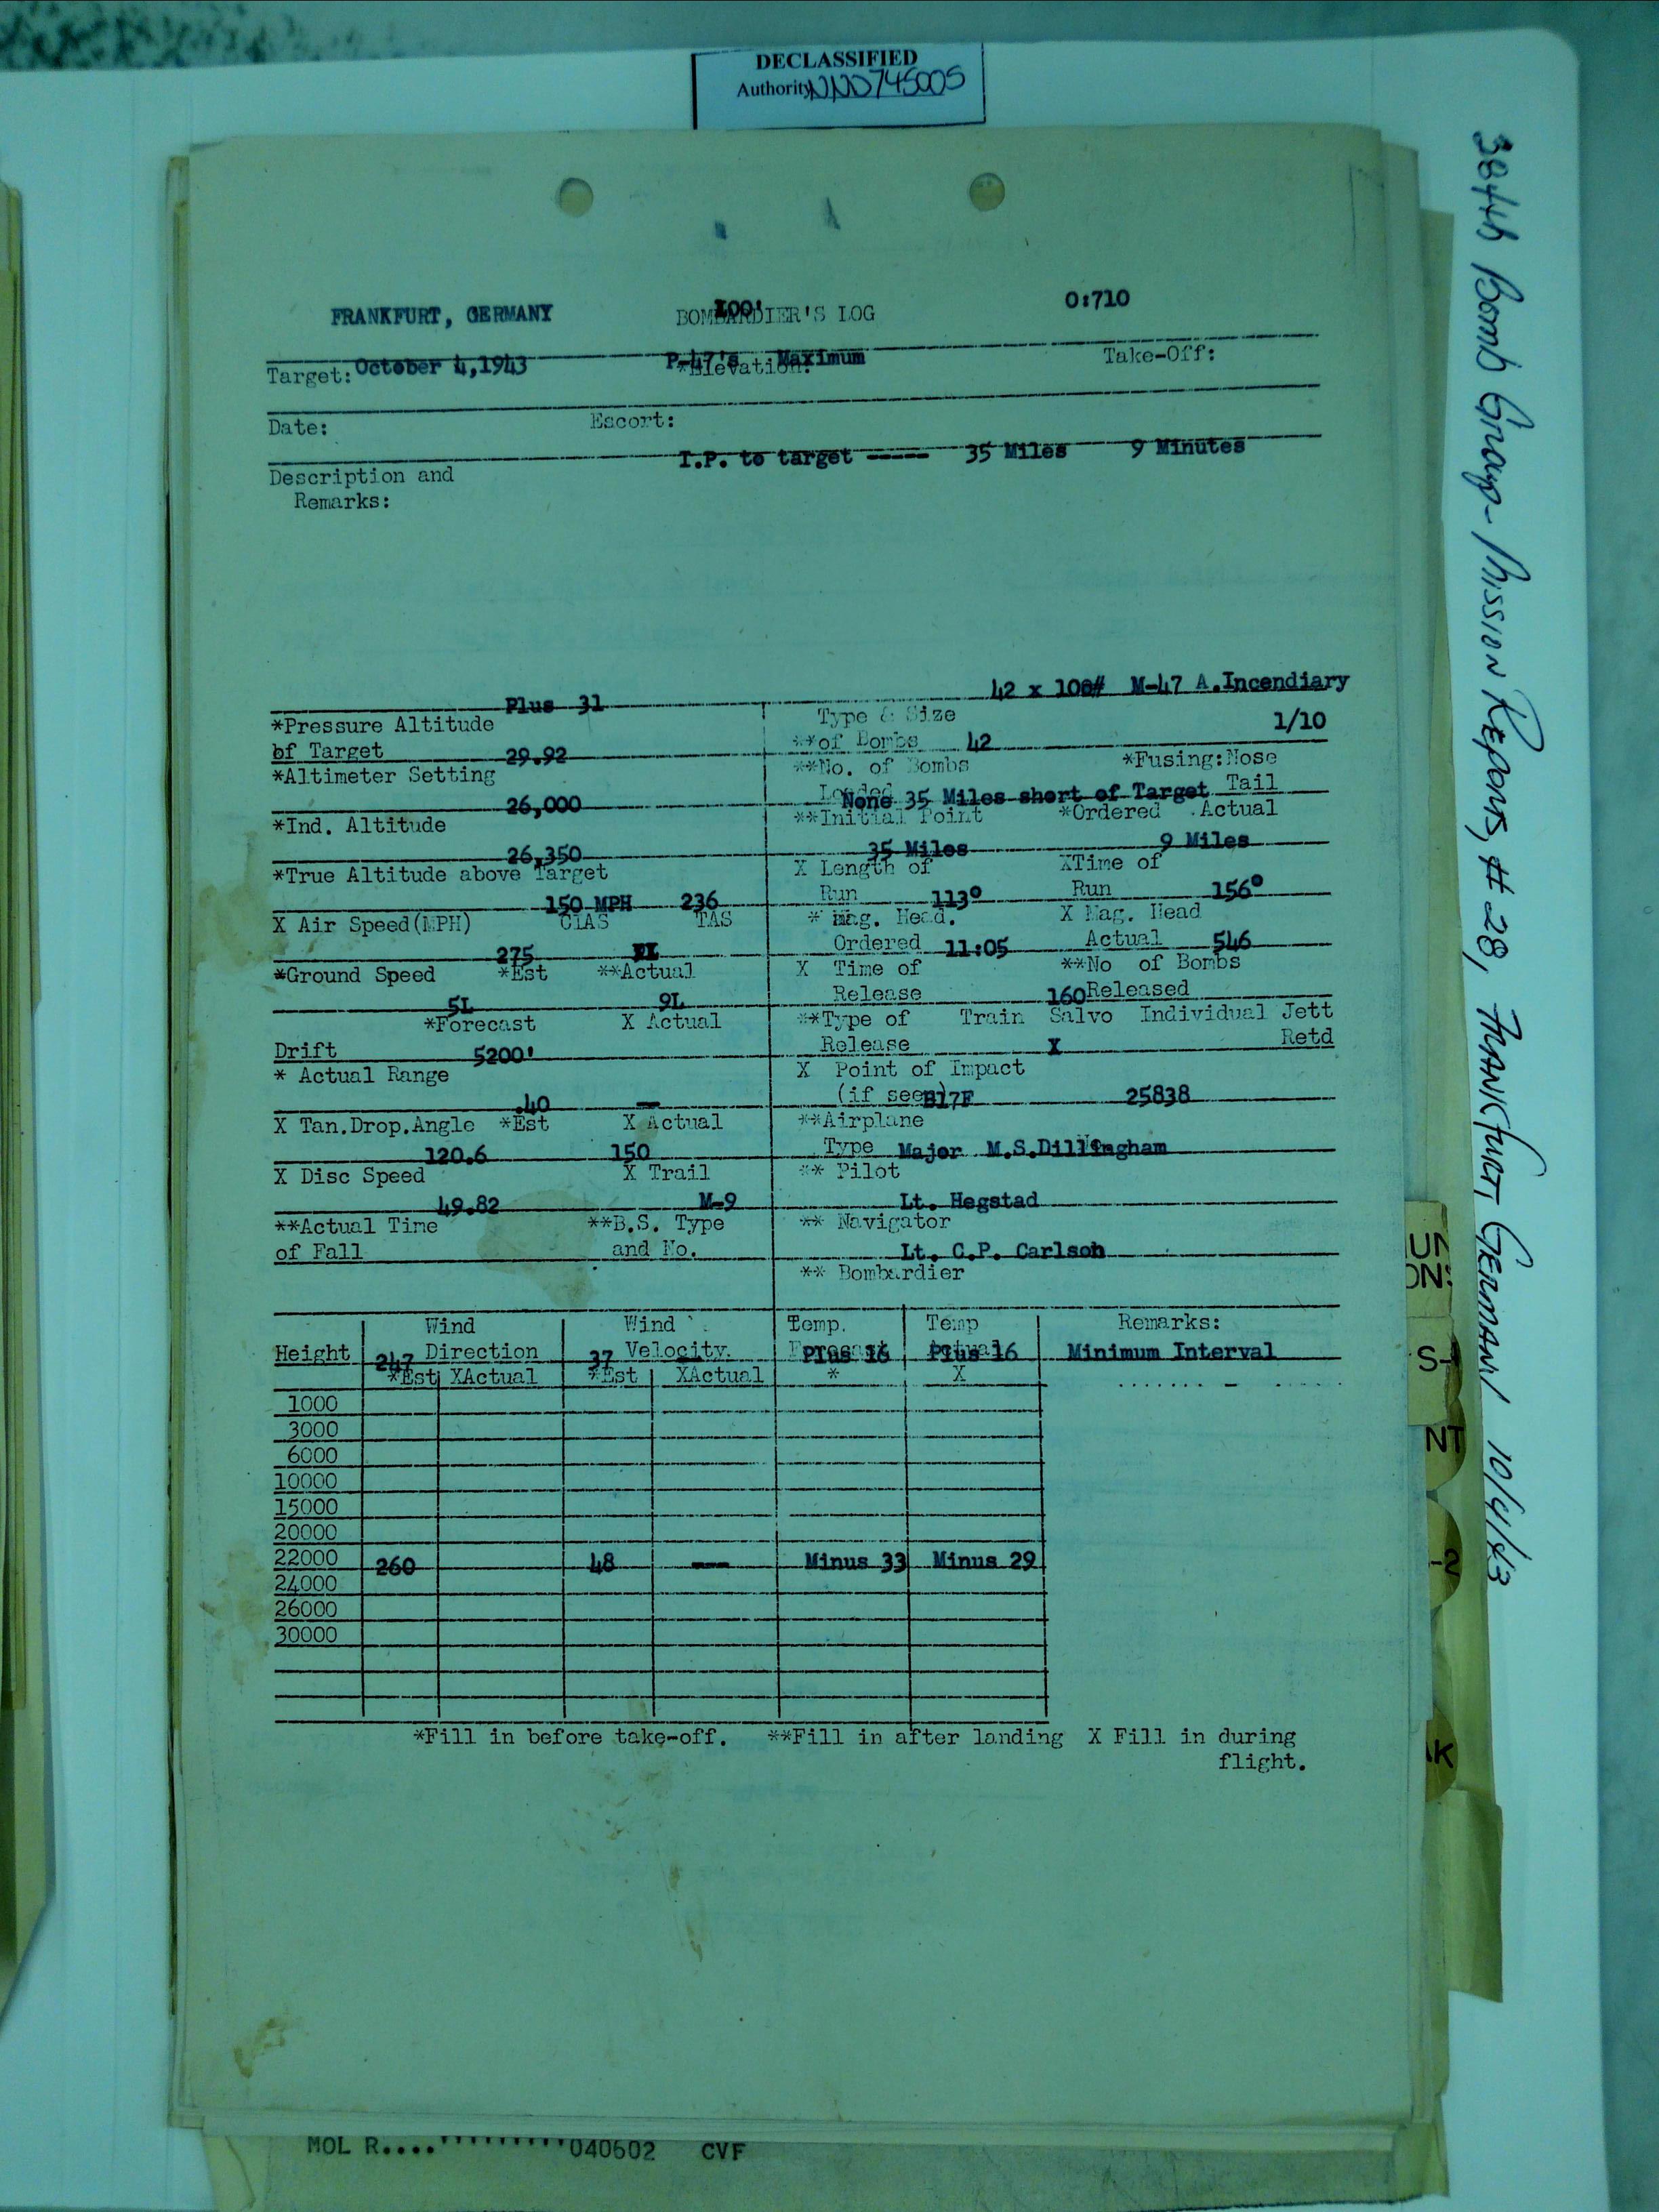 DECLASSIFIED
Authority NND745005
384th Bomb Group - Mission Reports, #28, FRANKFURT, GERMANY 10/4/43
FRANKFURT, GERMANY BOMBARDIER'S LOG 100' 0:710
Target: October 4,1943 P-47's Maximum *Elevation: Take-Off:
Date: Escort:
I.P. to target ----- 35 Miles 9 Minutes
Description and
Remarks:
42 x 100# M-47 A.Incendiary
Plus 31
*Pressure Altitude Type & Size 1/10
of Target **of Bombs 42
29.92
*Altimeter Setting **No. of Bombs *Fusing:Nose
Loaded Tail
26,000 None 35 Miles short of Target
*Ind. Altitude **Initial Point *Ordered Actual
26,350 35 Miles 9 Miles
*True Altitude above Target X Length of XTime of
150 MPH 236 Run 113° Run 156°
X Air Speed(MPH) CIAS TAS * Mag. Head. X Mag. Head
275 Ordered 11:05 Actual 546
*Ground Speed *Est **Actual X Time of **No of Bombs
5L 9L Release 160 Released
*Forecast X Actual **Type of Train Salvo Individual Jett
Drift 5200' Release X Retd
* Actual Range X Point of Impact
.40 — (if seen) B17F 25838
X Tan.Drop.Angle *Est X Actual **Airplane
120.6 150 Type Major M.S.Dillingham
X Disc Speed X Trail ** Pilot
49.82 M-9 Lt. Hegstad
**Actual Time **B.S. Type ** Navigator
of Fall and No. Lt. C.P. Carlson
** Bombardier
Wind Wind Temp. Temp Remarks:
Height Direction Velocity. Forecast Actual
247 37 Plus 16 Plus 16 Minimum Interval
*Est XActual *Est XActual * X
1000
3000
6000
10000
15000
20000
22000 260 48 --- Minus 33 Minus 29
24000
26000
30000
*Fill in before take-off. **Fill in after landing X Fill in during
flight.
S-
NT
-2
AK
MOL R.... 040502 CVF